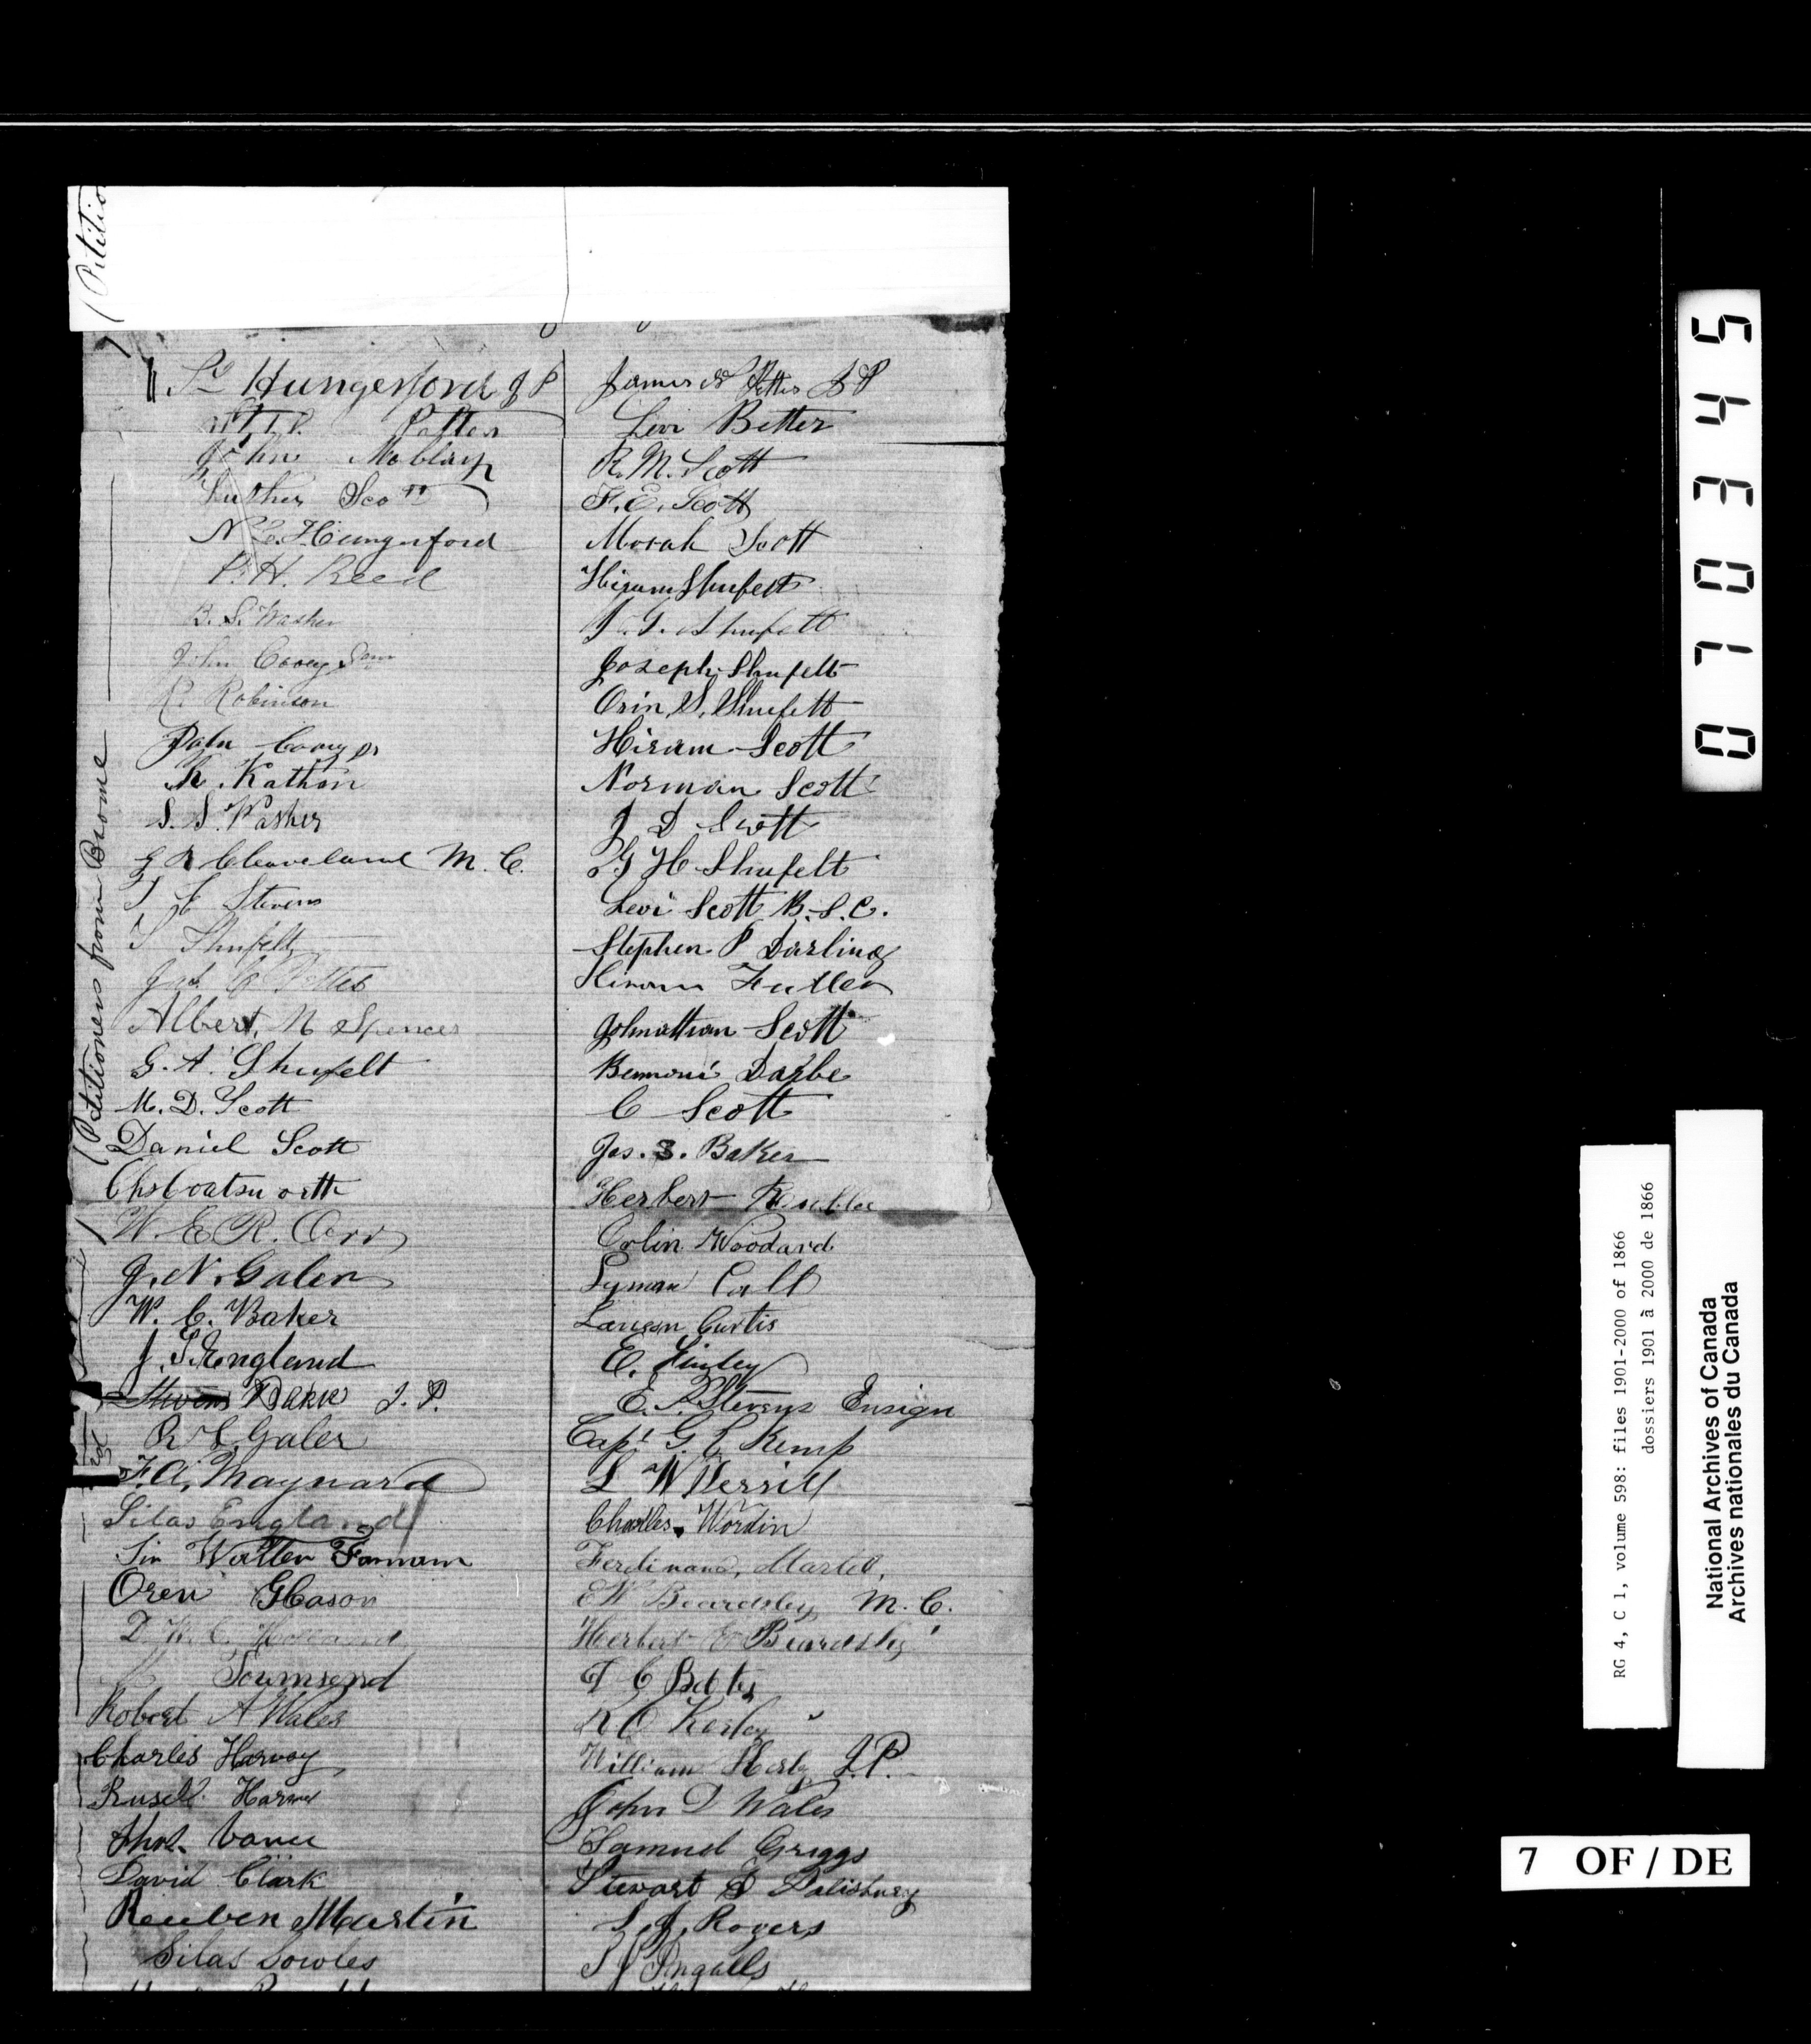 (Petitio
Sd Hungerford J P
Patten
John
Luther Scott
N. L. Hungerford
P. H. Reed
B. S. Washer
John Cooey Senr
R. Robinson
John Cooey Jr
K. Kathan
S. S. Washer
G R Cleaveland M. C.
T L Stevens
S Shufelt
Jas. C Pettes
Albert N Spencer
G. A. Shufelt
M. D. Scott
Daniel Scott
Chs Coatsworth
W. E. R. Orr
J. N. Galer
W. C. Baker
J. S. England
Stevens Baker J. P.
R L Galer
F. A. Maynard
Silas England
Sir Walter Farnam
Oren Gleason
D. W. C.
Townsend
Robert A Wales
Charles Harvey
Rusell Harvey
Thos. Vance
David Clark
Reuben Martin
Silas Sowles
James Pettes J P
Levi Better
R. M. Scott
F. E. Scott
Morah Scott
Hiram Shufelt
J. G. Shufelt
Joseph Shufelt
Orin S. Shufelt
Hiram Scott
Norman Scott
J D Scott
G H Shufelt
Levi Scott B. S. C.
Stephen P Darling
Hiram Fuller
Johnathan Scott
Bennoni Darbe
C Scott
Jas. S. Baker
Herbert
Orlin Woodard
Lyman Call
Lauson Curtis
E. Finley
E. P. Stevens Ensign
Capt G. C Kemp
L W Merrill
Charles Wordin
Ferdinand Martel,
E W Beardsley M. C.
Herbert E Beardsley
T C Bates
R O Kerley
William J. P.
John D Wales
Samuel Griggs
Stewart S Salisbury
S. J. Rogers
S J Ingalls
(Petitioners from Brome
0 7 0 3 4 5
RG 4, C 1, volume 598: files 1901-2000 of 1866
dossiers 1901 à 2000 de 1866
National Archives of Canada
Archives nationales du Canada
7 OF / DE